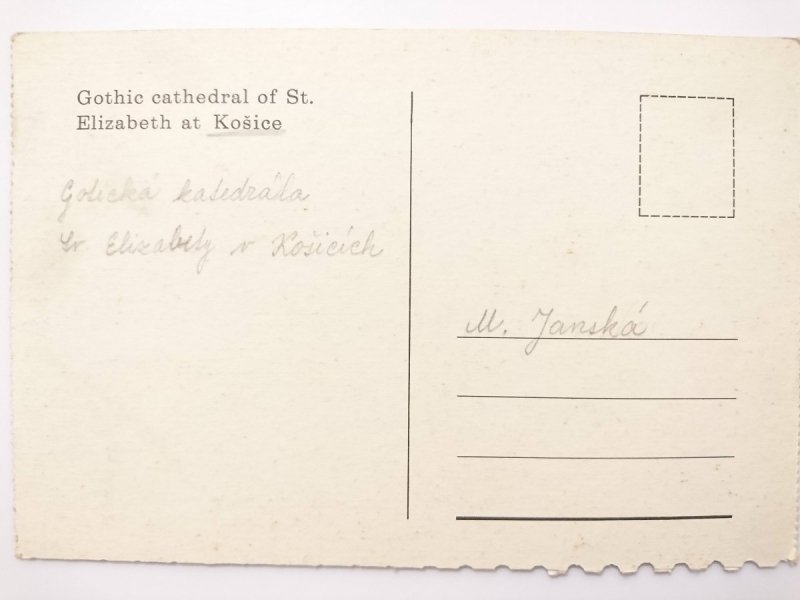 Gothic cathedral of St.
Elizabeth at Košice
Gotická katedrála
Sv Elizabety v Košicích
M. Janská